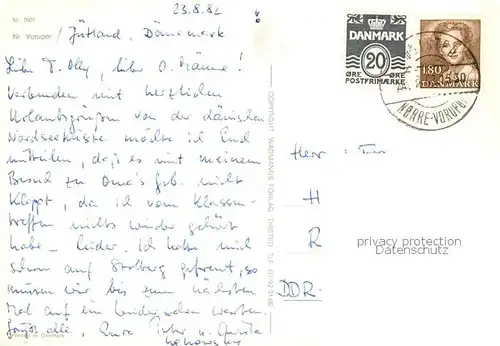 23.8.82
Nr. 1901
Nr. Vorupør / Jütland, Dänemark
Liebe T. Olly, lieber O. Hänne!
Verbunden mit herzlichen
Urlaubsgrüßen von der dänischen
Nordseeküste möchte ich Euch
mitteilen, daß es mit meinem
Besuch zu Oma's geb. nicht
klappt, da ich vom Klassen-
treffen nichts wieder gehört
habe - leider. Ich hatte mich
schon auf Stolberg gefreut, so
müssen wir bis zum nächsten
Mal auf ein Wiedersehen warten.
Grüßt alle, Eure u.
COPYRIGHT WARMANNS FORLAG, THISTED
DANMARK
20
ØRE ØRE
POSTFRIMÆRKE
180
DANMARK
NØRRE-VORUPØR
Herr u. Frau
H
R
DDR.
privacy protection
Datenschutz